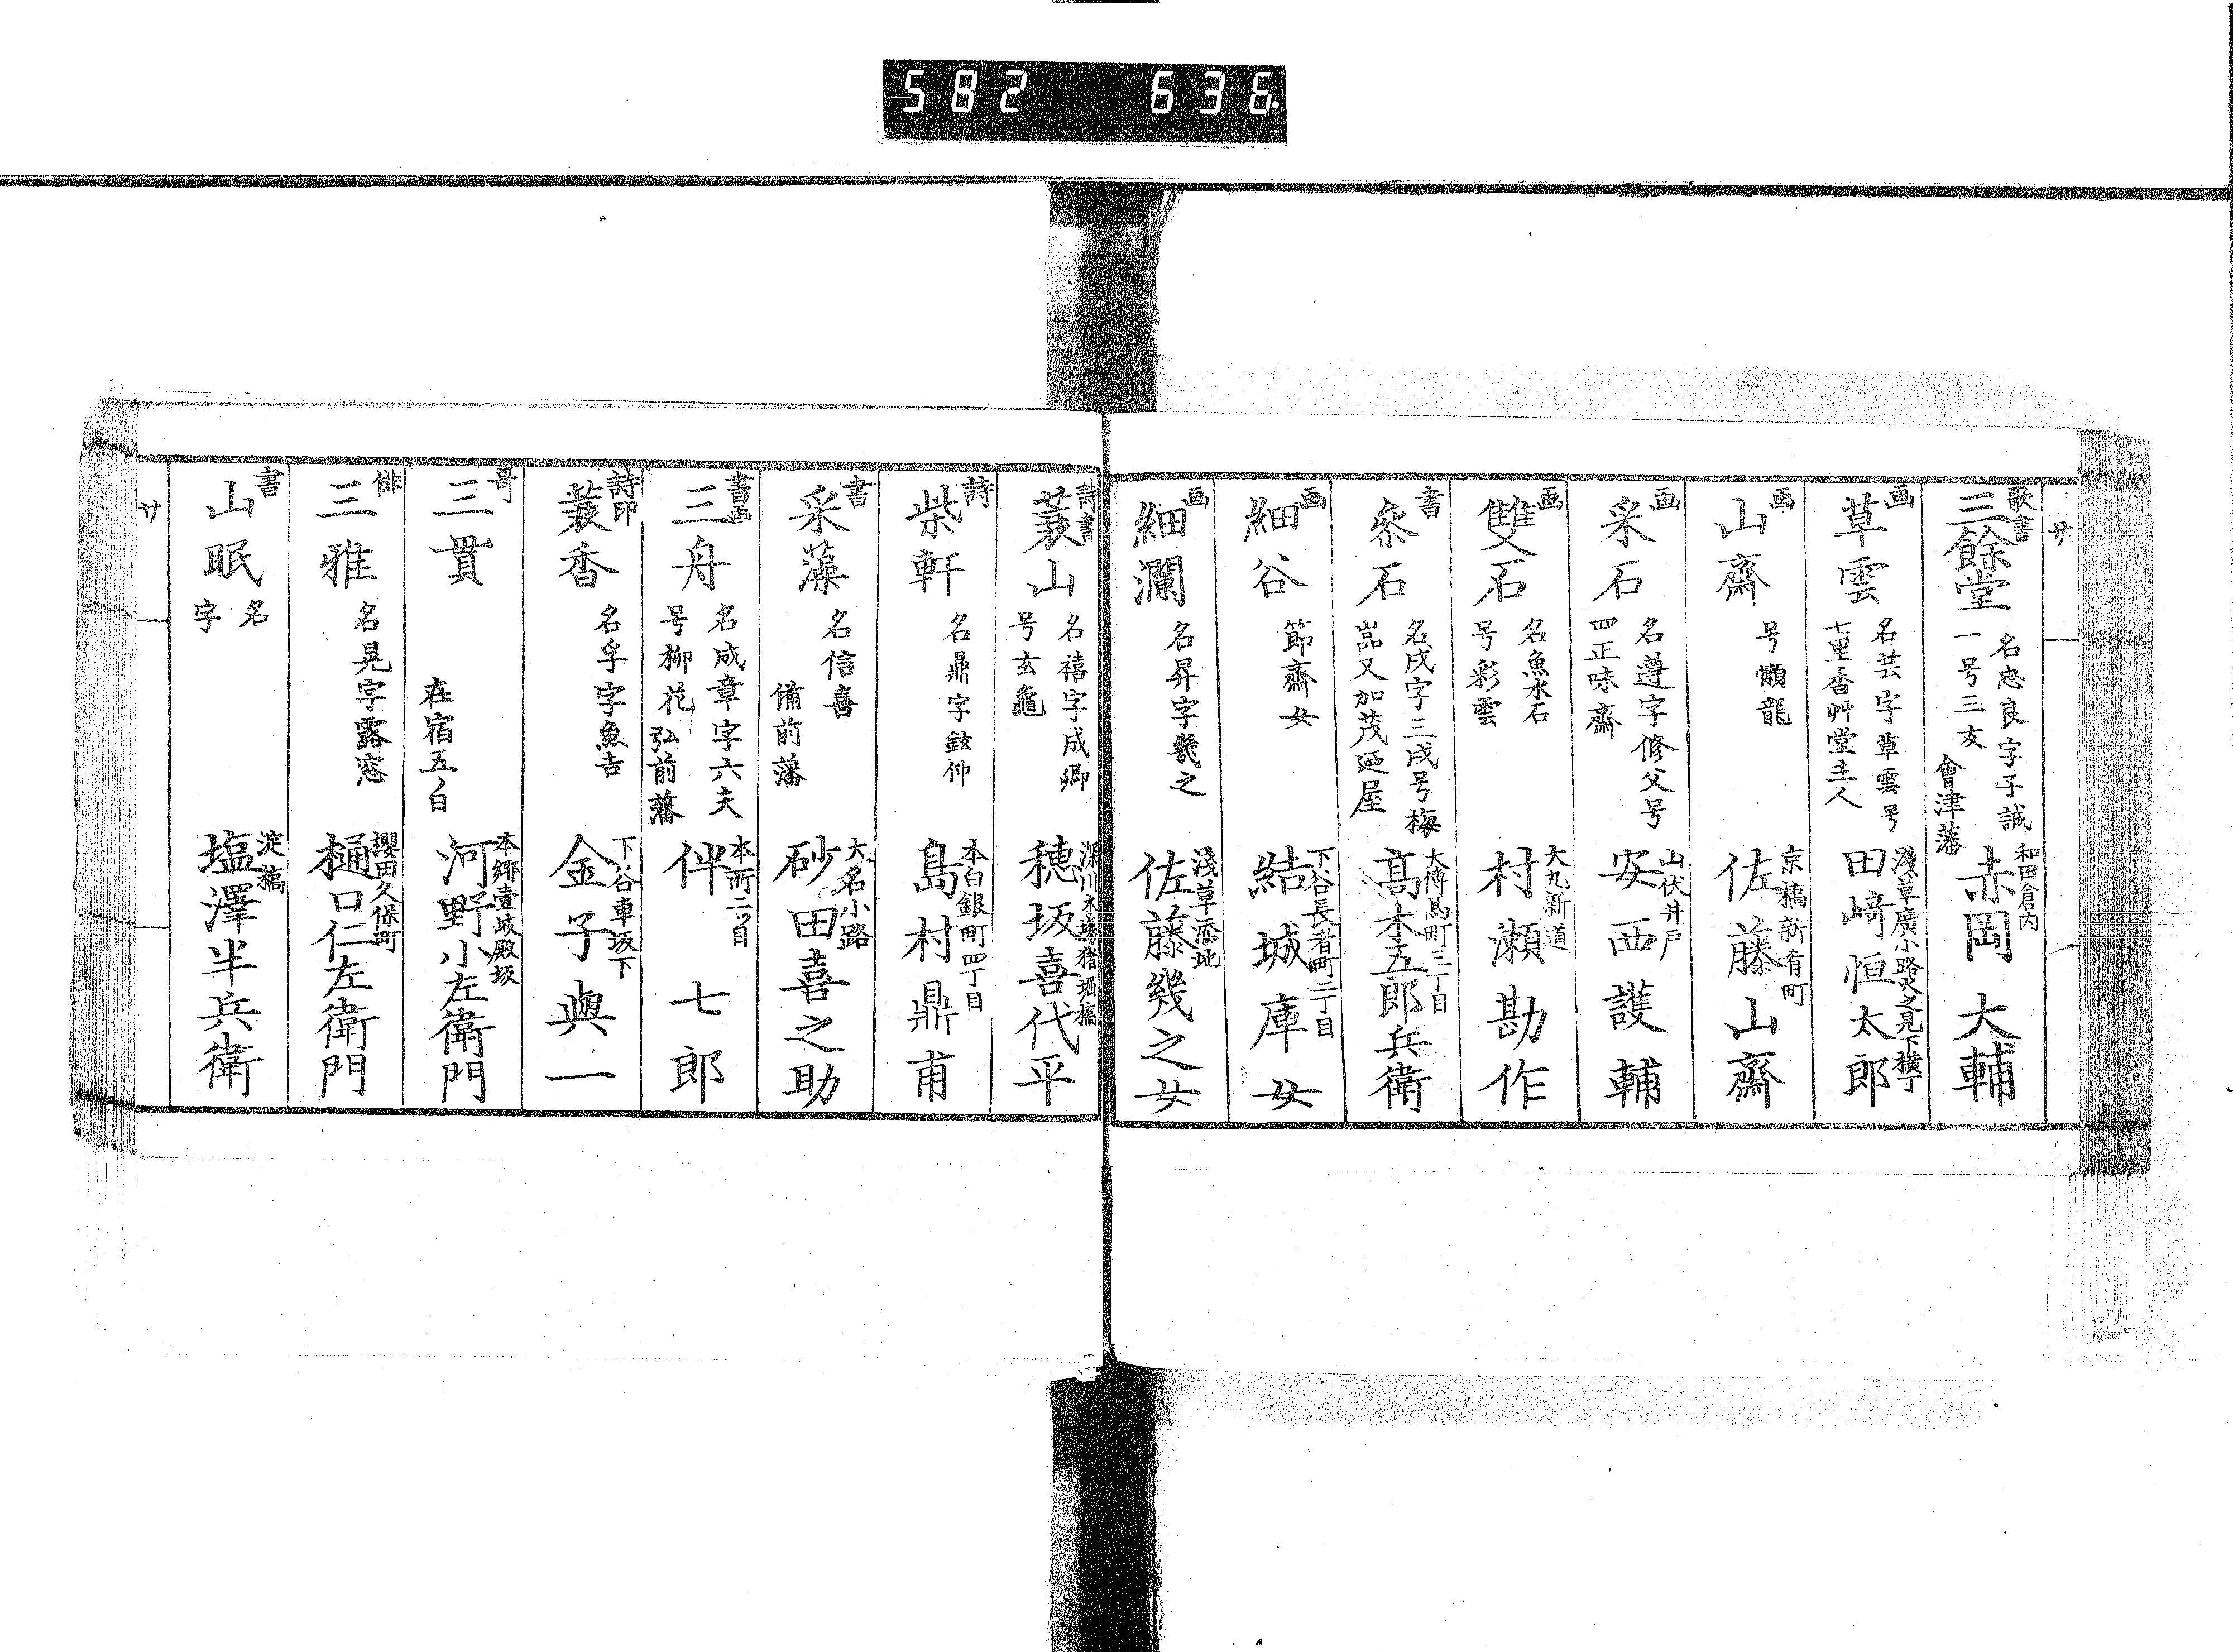 582 636
サ
歌書
三餘堂
名忠良字子誠
一号三友
會津藩
和田倉内
赤岡大輔
画
草雲
名芸字草雲号
七里香艸堂主人
淺草廣小路火之見下横丁
田﨑恒太郎
画
山齋
号懶龍
京橋新肴町
佐藤山齋
画
采石
名遵字修父号
四正味齋
山伏井戸
安西護輔
画
雙石
名魚水石
号彩雲
大丸新道
村瀬勘作
書
叅石
名戌字三戌号梅
嵓又加茂廼屋
大傳馬町三丁目
髙木五郎兵衛
画
細谷
節齋女
下谷長者町二丁目
結城庫女
画
細瀾
名昇字幾之
淺草添地
佐藤幾之女
詩書
蓑山
名禧字成卿
号玄龜
深川木場猪堀橋
穂坂喜代平
詩
柴軒
名鼎字鉉仲
本白銀町四丁目
島村鼎甫
書
采藻
名信喜
備前藩
大名小路
砂田喜之助
書画
三舟
名成章字六夫
号柳花
弘前藩
本所二ツ目
伴七郎
詩印
蓑香
名孚字魚吉
下谷車坂下
金子與一
哥
三貫
在宿五ノ日
本郷壹岐殿坂
河野小左衛門
俳
三雅
名晃字露窓
櫻田久保町
樋口仁左衛門
書
山眠
名
字
淀橋
塩澤半兵衛
サ